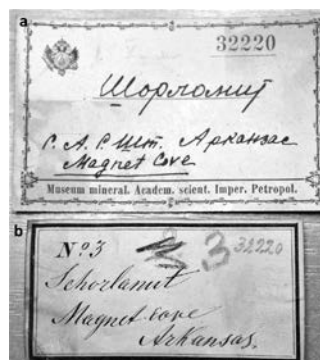 a
32220
Шорломит
С. А. С. Шт. Арканзас
Magnet Cove
Museum mineral. Academ. scient. Imper. Petropol.
b
Nº3 3 32220
Schorlamit
Magnet cove
Arkansas.